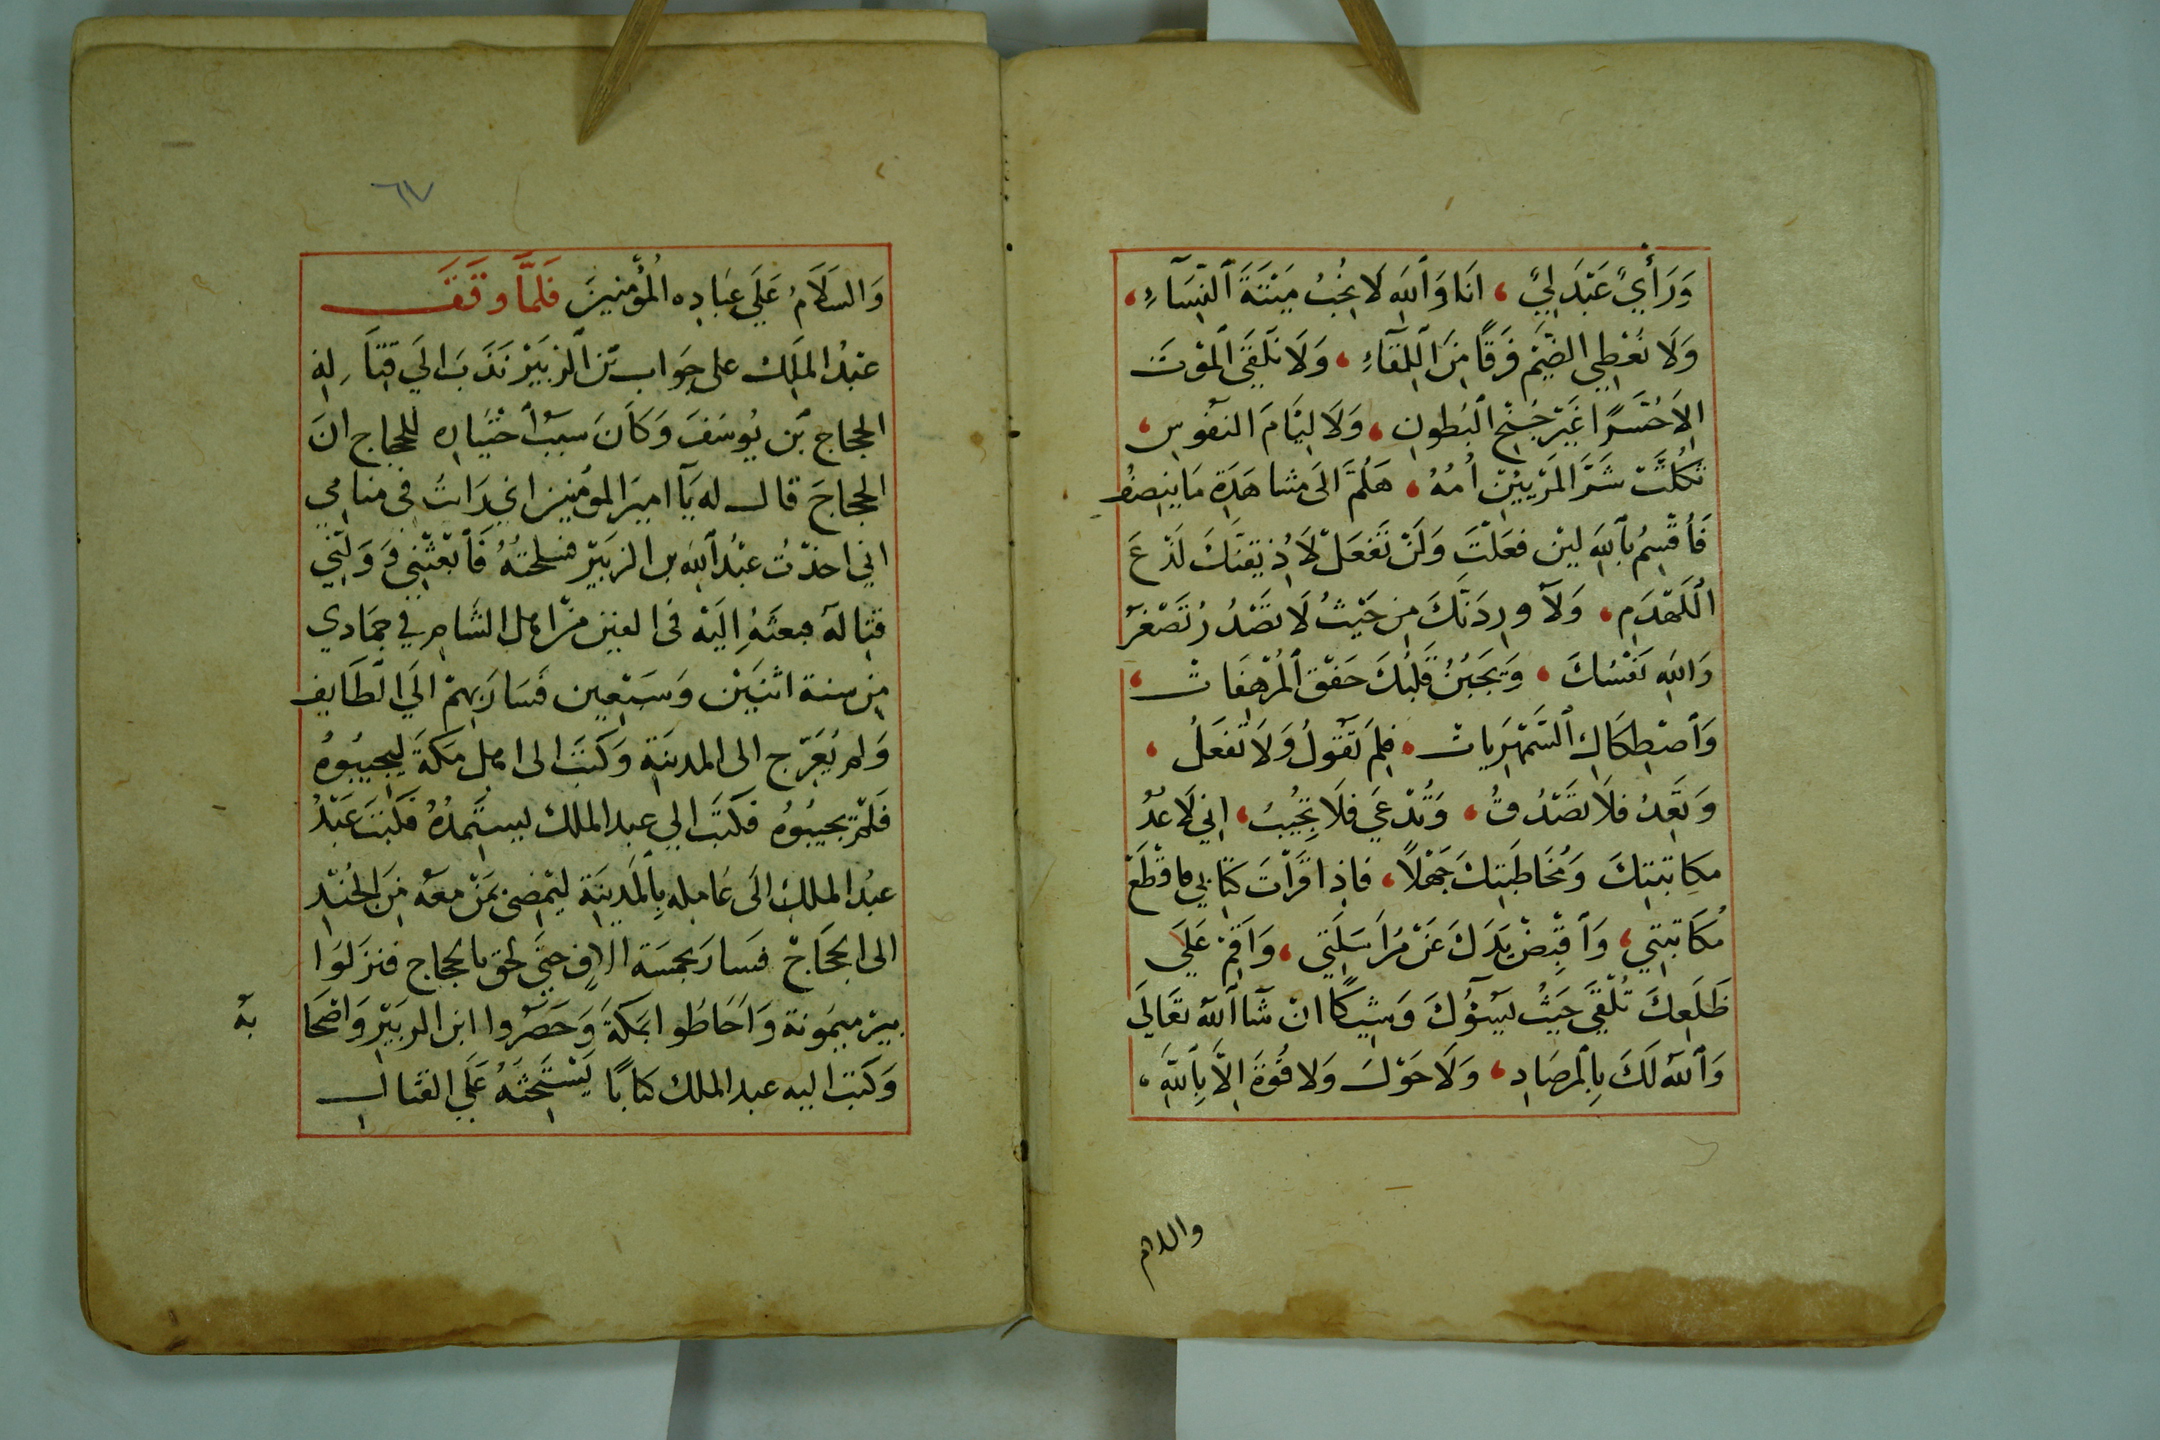 وَرَأْيٌ عَبْدَلِيٌّ، انَا وَٱللهِ لَا نحُبُّ مِيْتَةَ ٱلنِّسَآءِ،
وَلَا نُعْطِي الضَّيْمَ فَرَقًا مِنَ اللِّقَآءِ، وَلَا نَلْقَى المَوْتَ
الاَ حُسَّرًا غَيْرَ جُنَّحِ ٱلبُطُونِ، وَلَا لِيَامَ النُّفُوسِ،
ثَكَلَتْ شَرَّ المَرْيَيْنِ اُمُّهُ، هَلُمَّ الَى مشاهَدَةِ مَا ينصِفُ
فَأُقْسِمُ بٱللهِ ليْن فعَلْتَ وَلَنْ تَفْعَلْ لَاُذِيقَنَّكَ لَذْعَ
ٱللَّهْذَمِ، وَلَاَ ورِدَنَّكَ مِن حَيْثُ لَا تَصْدُرُ تَصْغُرُ
وَاللهِ نَفْسُكَ، وَيَجْبُنُ قَلبُكَ خَفْقَ ٱلمُرْهَفَاتِ،
وَٱصْطِكَاكِ ٱلسَّمْهَرِيَاتِ، فلِمَ تَقُولُ وَلَا تَفعَلُ،
وَتَعِدُ فلَا تَصْدُقُ، وَتُدْعَي فلَا تِجُيبُ، اني لَاعُدُّ
مكاتبتِكَ وَمُخَاطَبَتِكَ جَهْلاً، فاذا قَرَأْتَ كتَابي فاقْطَعْ
مُكَاتبَتِي، وَٱقْبِضْ يَدَكَ عَنْ مُرَاسَلَتِي، وَاَقِمْ عَلَي
ظَلَعِكَ تُلْقَى حَيْثُ يَسُؤُكَ وَشِيكًا انْ شَآ ٱللهُ تعَالَى
وَٱللهُ لَكَ بِٱلمرصَادِ، وَلَا حَوْلَ وَلا قُوَّةَ الَّا بِٱللهِ،
والسلام
٦٧
وَالسَلَامُ عَلَي عِبَادِه المُؤْمِنِينَ فَلَمَّا وقَفَ
عبْدُ المَلِك على جوَاب بْن ٱلزبَيْر نَدَبَ الَي قِتَالِهِ
الحجاج بْن يُوسُفَ وَكَانَ سببُ ٱختيَارِهِ للحجاج انَ
الحجاجَ قال له يَآ اميرَ المومنين اني رَايتُ في منامي
اني اخذتُ عبْدُ ٱلله بن الزبَيْر فسلختُهُ فَٱبْعَثْنِي وَوَلِّنِي
قتالهُ فبعثَهُ اِلَيْهِ في الفين مْن اهل الشَامِ في جمَادي
مِن سنة اثنَيْن وَسَبْعِين فَسَارَ بِهِمْ الَي ٱلطَايف
وَلم يُعَرِّج الى المدينَةِ وَكَتَبَ الى اهل مكَةَ ليجيبُوهُ
فَلَمْ يجيبُوهُ فكَتَبَ الي عبد الملك ليستَمِدُّهُ فكَتبَ عَبْدُ
عبْدُ الملك الَى عَامِلِهِ بٱلمَدِينَة ليَمْضى بَمَنْ معَهُ مِنَ الجُنْدِ
الى الحجَاج فسَارَ بخمسَة آلافٍ حتَّى لحِقَ بالحجاج فنزَلوَا
بيرَ ميمُونة وَاَحَاطُوا بمَكةَ وَحَصَرُوا ابن الزبَيْر وَاصْحَا
به
وَكَتبَ اليه عبد الملك كتابًا يَسْتَحِثُّهُ عَلَي القتَالِ